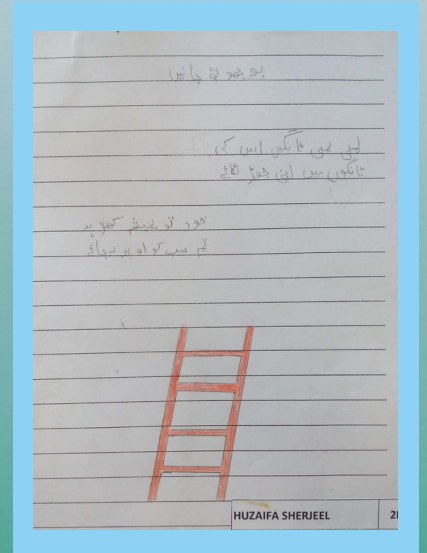 بوجھو تو جانیں
لمبی لمبی ٹانگیں اس کی
ٹانگوں میں اپنی جوڑ لگائے
خود تو ہمیشہ کھڑی
تم سب کو اوپر لے جائے
HUZAIFA SHERJEEL